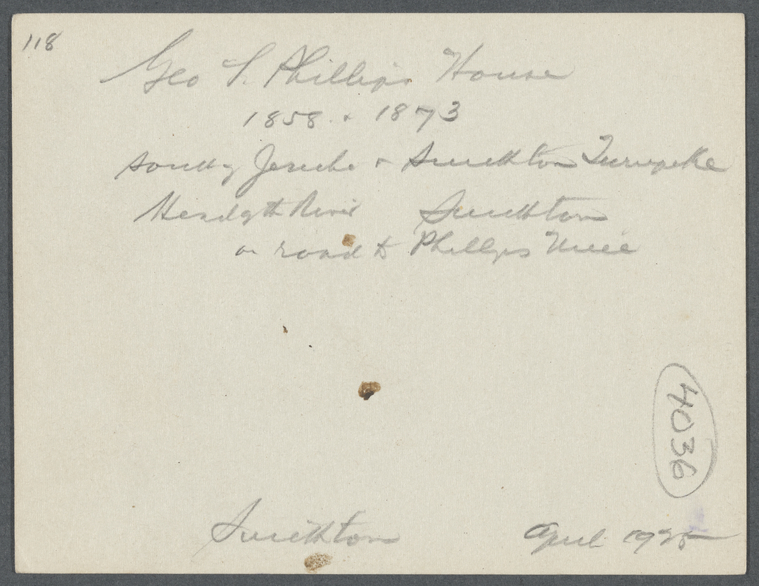 118
Geo S. Phillips House
1858 & 1873
South of Jericho & Smithtown Turnpike
Head of the River Smithtown
on road to Phillips Mill
4036
Smithtown April 1925